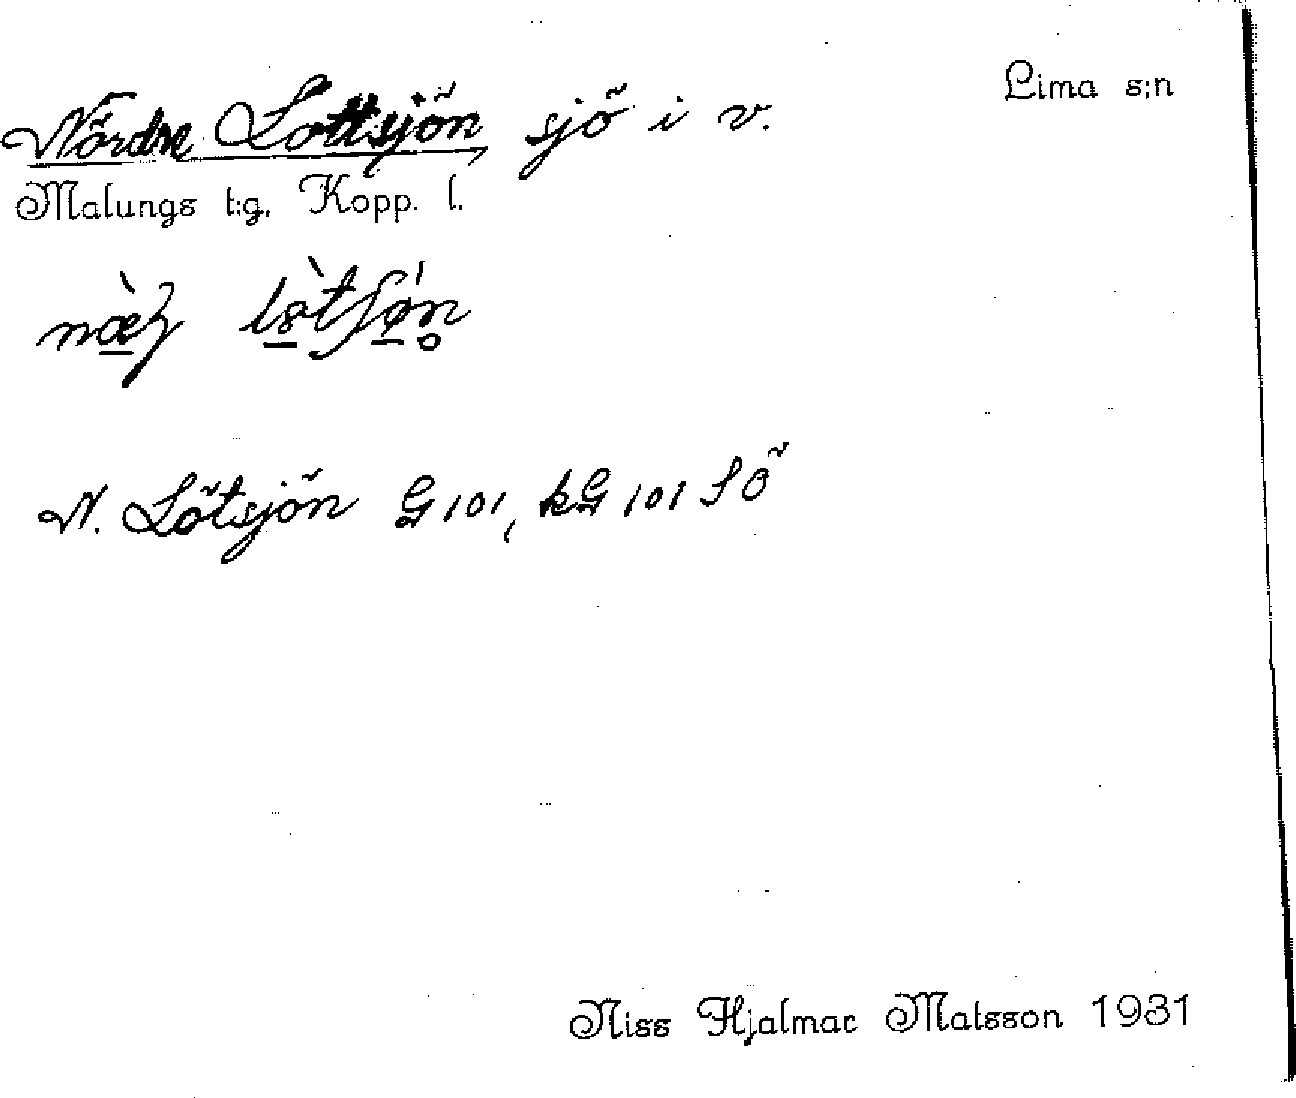 Lima s:n
Nördre Lottsjön, sjö i v.
Malungs t:g, Kopp. l.
N. Lötsjön G 101, kG 101 SÖ
Niss Hjalmar Matsson 1931